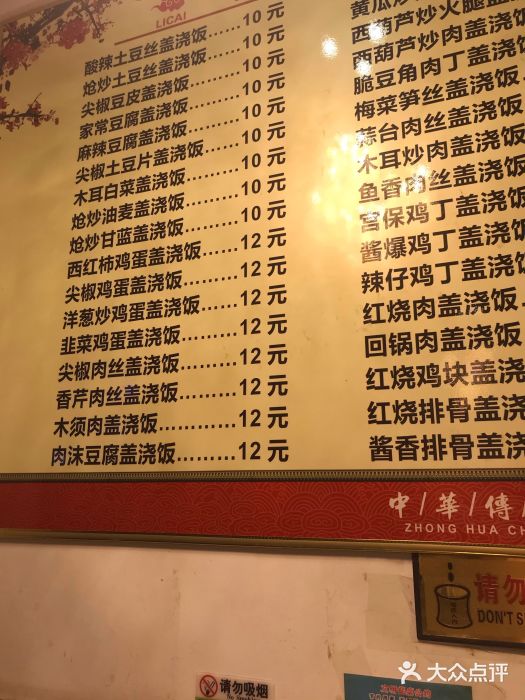 LICAI
酸辣土豆丝盖浇饭……10 元
炝炒土豆丝盖浇饭……10 元
尖椒豆皮盖浇饭……10 元
家常豆腐盖浇饭……10 元
麻辣豆腐盖浇饭……10 元
尖椒土豆片盖浇饭……10 元
木耳白菜盖浇饭……10 元
炝炒油麦盖浇饭……10 元
炝炒甘蓝盖浇饭……10 元
西红柿鸡蛋盖浇饭……12 元
尖椒鸡蛋盖浇饭……12 元
洋葱炒鸡蛋盖浇饭……12 元
韭菜鸡蛋盖浇饭……12 元
尖椒肉丝盖浇饭……12 元
香芹肉丝盖浇饭……12 元
木须肉盖浇饭……12 元
肉沫豆腐盖浇饭……12 元
黄瓜炒
西葫芦炒火腿盖
西葫芦炒肉盖浇
脆豆角肉丁盖浇
梅菜笋丝盖浇
蒜台肉丝盖浇
木耳炒肉盖浇
鱼香肉丝盖浇
宫保鸡丁盖浇
酱爆鸡丁盖浇
辣仔鸡丁盖浇
红烧肉盖浇饭
回锅肉盖浇饭
红烧鸡块盖浇
红烧排骨盖浇
酱香排骨盖浇
中/華/傳/
ZHONG HUA CH
请勿
DON'T S
请勿吸烟
No Smoking
大众点评